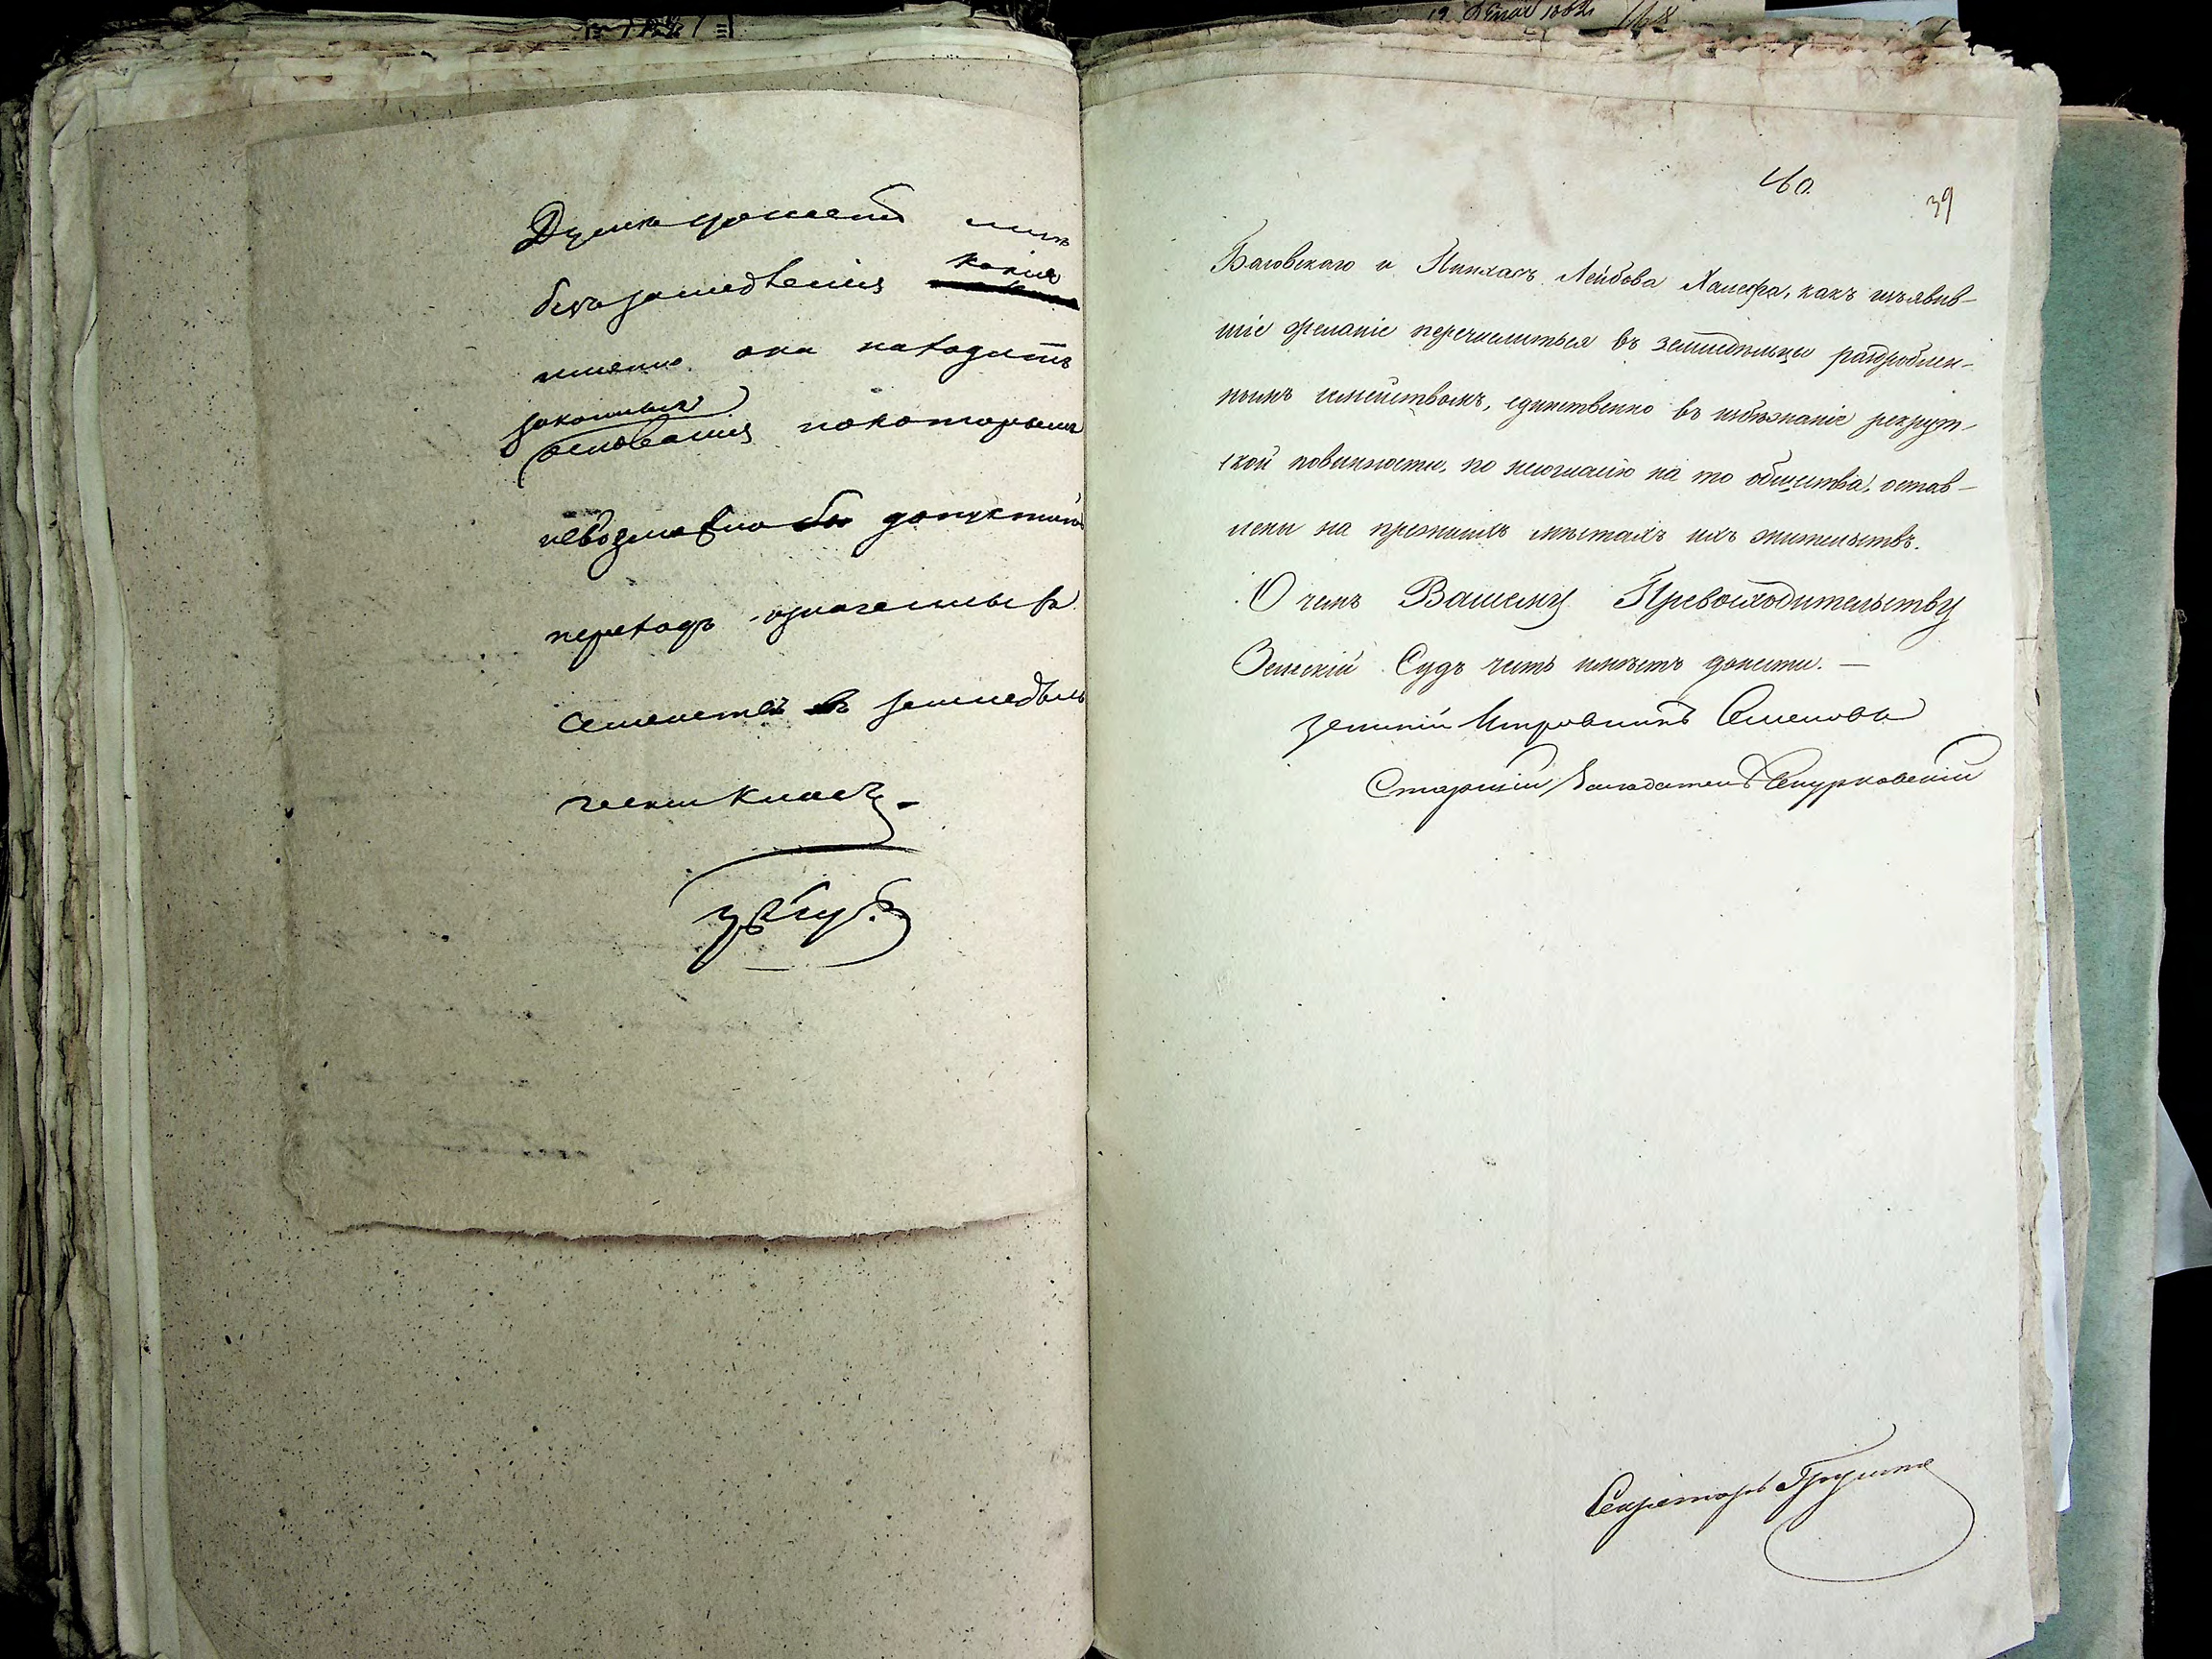 Дума донесетъ мнѣ
безъ замедленія какія
именно она находитъ
законныя
основанія по которымъ
невозможно допустить
переходъ означенныхъ
семействъ въ земледѣль
ческій классъ.
40.
39
Баговскаго и Пинхасъ Лейбова Халефа, какъ изъявив-
шіе желаніе перечислиться въ земледѣльцы раздроблен-
нымъ семействомъ, единственно въ избѣжаніе рекрут-
ской повинности, по несогласію на то общества, остав-
лены на прежнихъ мѣстахъ ихъ жительствъ.
О чемъ Вашему Превосходительству
Земскій Судъ честь имѣетъ донести. —
Земскій Исправникъ Семеновъ
Старшій Засѣдатель
Секретарь